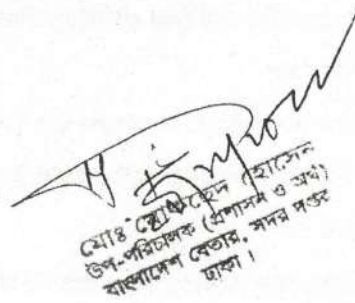 মোঃ হোসেন
উপ-পরিচালক (প্রশাসন ও অর্থ)
বাংলাদেশ বেতার, সদর দপ্তর
ঢাকা।